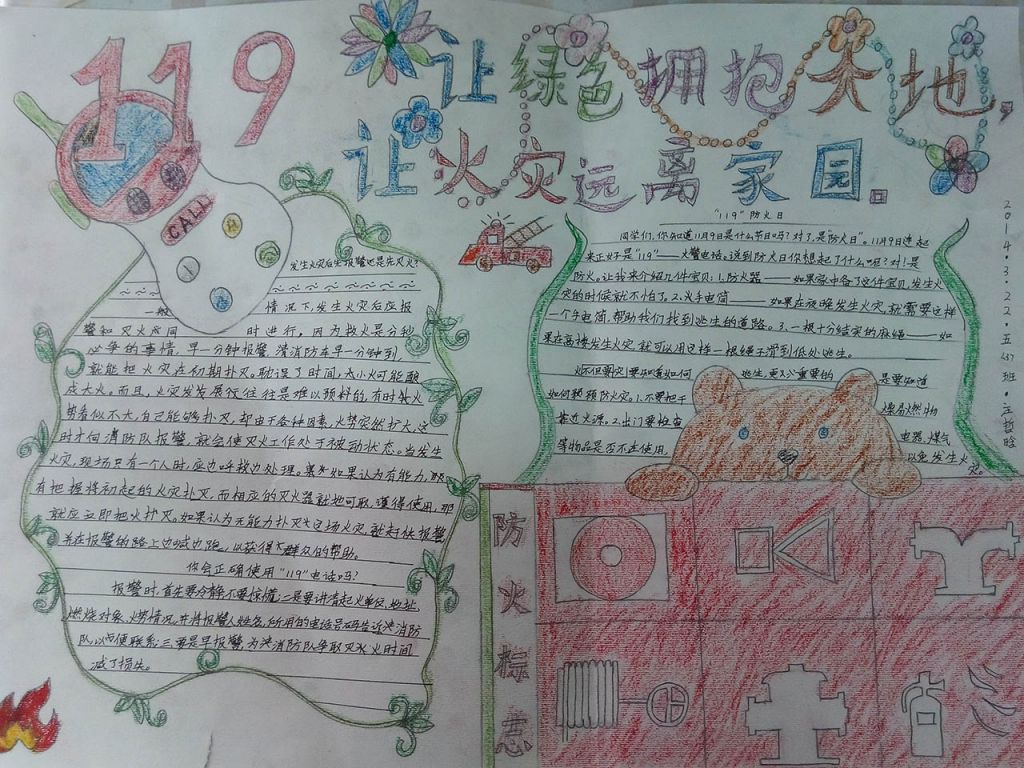 119
让绿色拥抱大地，
让火灾远离家园。
CALL
发生火灾后先报警还是先灭火？
一般情况下,发生火灾后应报
警和灭火应同时进行，因为救火是分秒
必争的事情，早一分钟报警，消防车早一分钟到，
就能把火灾在初期扑灭。耽误了时间,小火可能酿
成大火。而且，火灾发发展往往是难以预料的,有时候火
势看似不大,自己能够扑灭,却由于各种因素,火势突然扩大,这
时才向消防队报警,就会使灭火工作处于被动状态。当发生
火灾,现场只有一个人时,应边呼救边处理。如果认为有能力
有把握将初起的火灾扑灭,而相应的灭火器就地可取,懂得使用,那
就应立即把火扑灭。如果认为无能力扑灭这场火灾,就赶快报警,
并在报警的路上边喊边跑，以获得群众的帮助。
你会正确使用"119"电话吗？
报警时,首先要冷静不要惊慌;二是要讲清起火单位,地址,
燃烧对象,火势情况,并将报警人姓名,所用的电话号码告诉消防
队,以便联系;三要是早报警,为消防队争取灭火时间
减了损失。
"119"防火日
同学们,你知道11月9日是什么节日吗？对了,是"防火日"。11月9日连起
来正好是"119"——火警电话。说到防火日你想起了什么呢？对！是
防火。让我来介绍几件宝贝:1.防火器——如果家中备了这件宝贝,发生火
灾的时候就不怕了。2.手电筒——如果在夜晚发生火灾,就需要这样
一个手电筒,帮助我们找到逃生的道路。3.一根十分结实的麻绳——如
果在高楼发生火灾,就可以用这样一根绳子滑到低处逃生。
不但要知道如何逃生,更重要的是要知道
如何预预防火灾。1.不要把干燥易燃物
靠近火源。2.出门要检查电器、煤气
等物品是否不在使用,以免发生火灾。
2014.3.22.五(5)班
防火标志